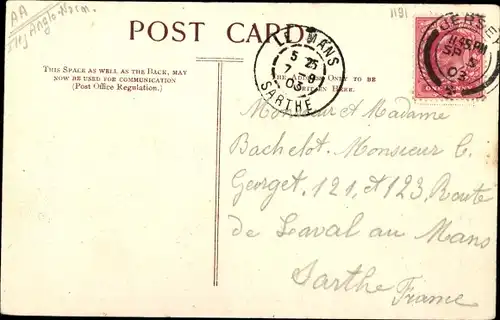 AA
Anglo-Norm.
1181
POST CARD
THIS SPACE AS WELL AS THE BACK, MAY
NOW BE USED FOR COMMUNICATION
(Post Office Regulation.)
THE ADDRESS ONLY TO BE
WRITTEN HERE.
LE MANS
5 25
7 9
03
SARTHE
JERSEY
SP 5
03
ONE PENNY
Monsieur et Madame
Bachelot. Monsieur C.
Georget. 121, et 123, Route
de Laval au Mans
Sarthe France